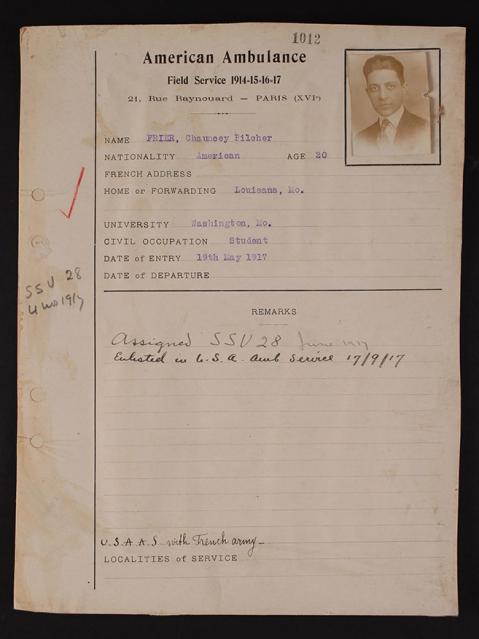 1012
American Ambulance
Field Service 1914-15-16-17
21, Rue Raynouard — PARIS (XVIe)
NAME FRIER, Chauncey Pilcher
NATIONALITY American AGE 20
FRENCH ADDRESS
HOME or FORWARDING Louisana, Mo.
UNIVERSITY Washington, Mo.
CIVIL OCCUPATION Student
DATE of ENTRY 19th May 1917
DATE of DEPARTURE
SSU 28
1917
REMARKS
Assigned SSU 28 June 1917
Enlisted in U.S.A. Amb Service 17/9/17
U.S.A.A.S with French army—
LOCALITIES of SERVICE